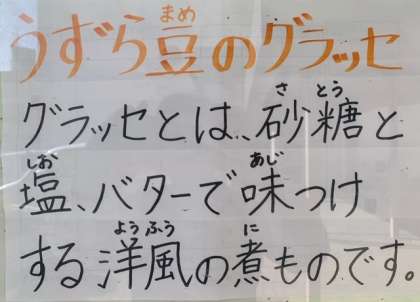 うずら豆のグラッセ
まめ
グラッセとは、砂糖と
さとう
塩、バターで味つけ
しお あじ
する洋風の煮ものです。
ようふう に